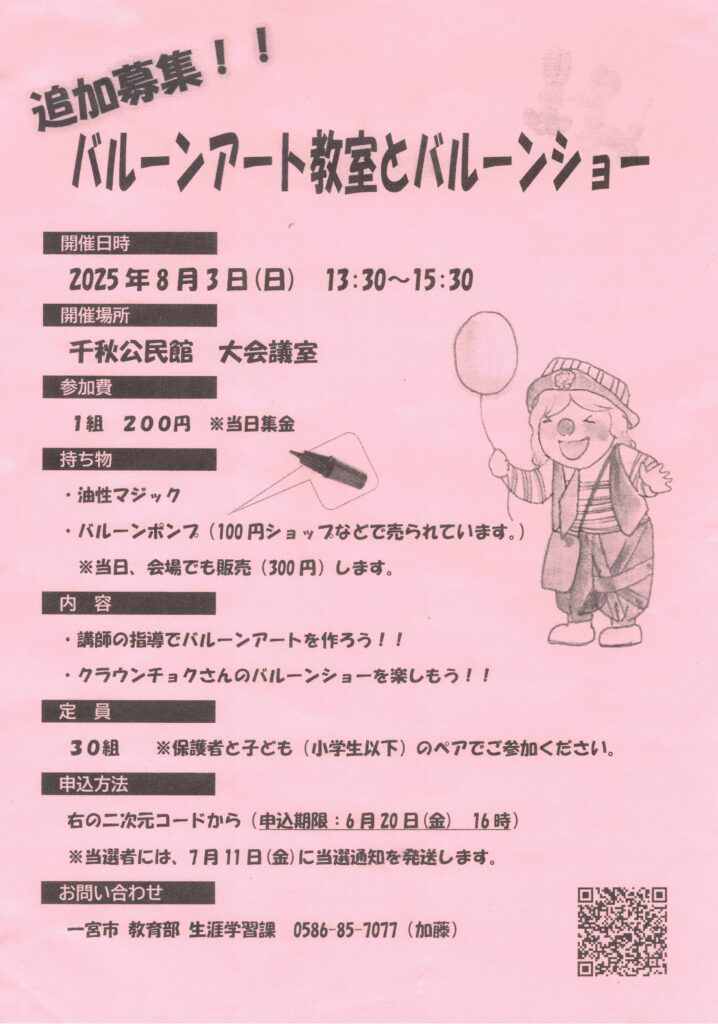 追加募集！！
バルーンアート教室とバルーンショー
開催日時
2025年8月3日(日)　13:30～15:30
開催場所
千秋公民館　大会議室
参加費
1組　200円　※当日集金
持ち物
・油性マジック
・バルーンポンプ（100円ショップなどで売られています。）
※当日、会場でも販売（300円）します。
内　容
・講師の指導でバルーンアートを作ろう！！
・クラウンチョクさんのバルーンショーを楽しもう！！
定　員
30組　　※保護者と子ども（小学生以下）のペアでご参加ください。
申込方法
右の二次元コードから（申込期限：6月20日(金)　16時）
※当選者には、7月11日(金)に当選通知を発送します。
お問い合わせ
一宮市 教育部 生涯学習課　0586-85-7077（加藤）